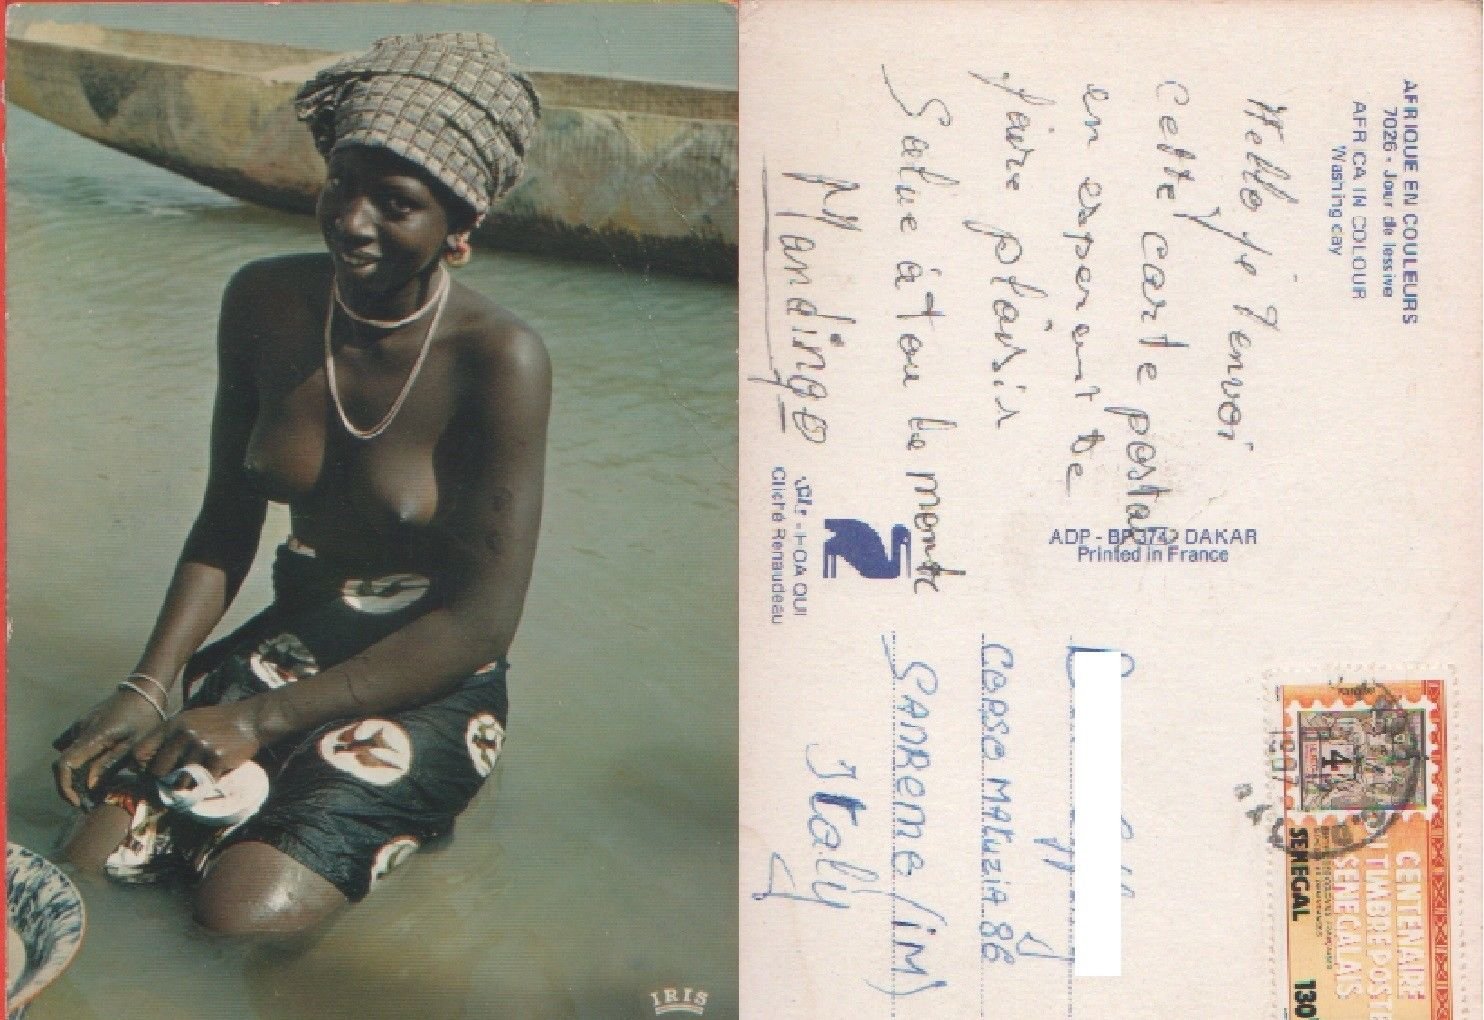 IRIS
AFRIQUE EN COULEURS
7026 - Jour de lessive
AFRICA IN COLOUR
Washing day
Hello je t'envoi
Cette carte postal
en esperant te
faire plaisir
Salue à tou le monde
Mandingo
HOA QUI
Cliché Renaudeau
ADP - BP 3742 DAKAR
Printed in France
CORSO
86
SANREMO (iM)
Italy
CENTENAIRE
TIMBRE POSTE
SENEGALAIS
SENEGAL
130
4